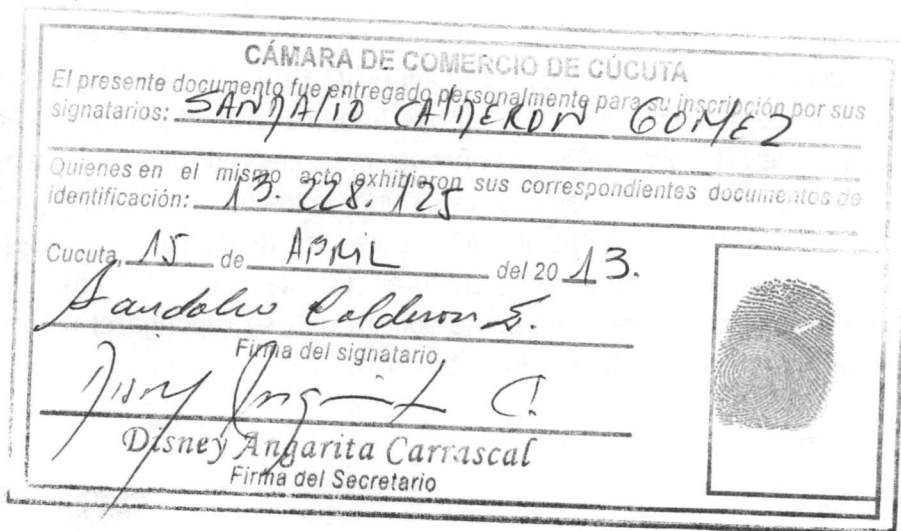 CÁMARA DE COMERCIO DE CÚCUTA
El presente documento fue entregado personalmente para su inscripción por sus
signatarios: SANDALIO CALDERON GOMEZ
Quienes en el mismo acto exhibieron sus correspondientes documentos de
identificación: 13.228.125
Cucuta, 15 de APRIL del 2013.
Sandalio Calderon G.
Firma del signatario
Disney Angarita C.
Disney Angarita Carrascal
Firma del Secretario